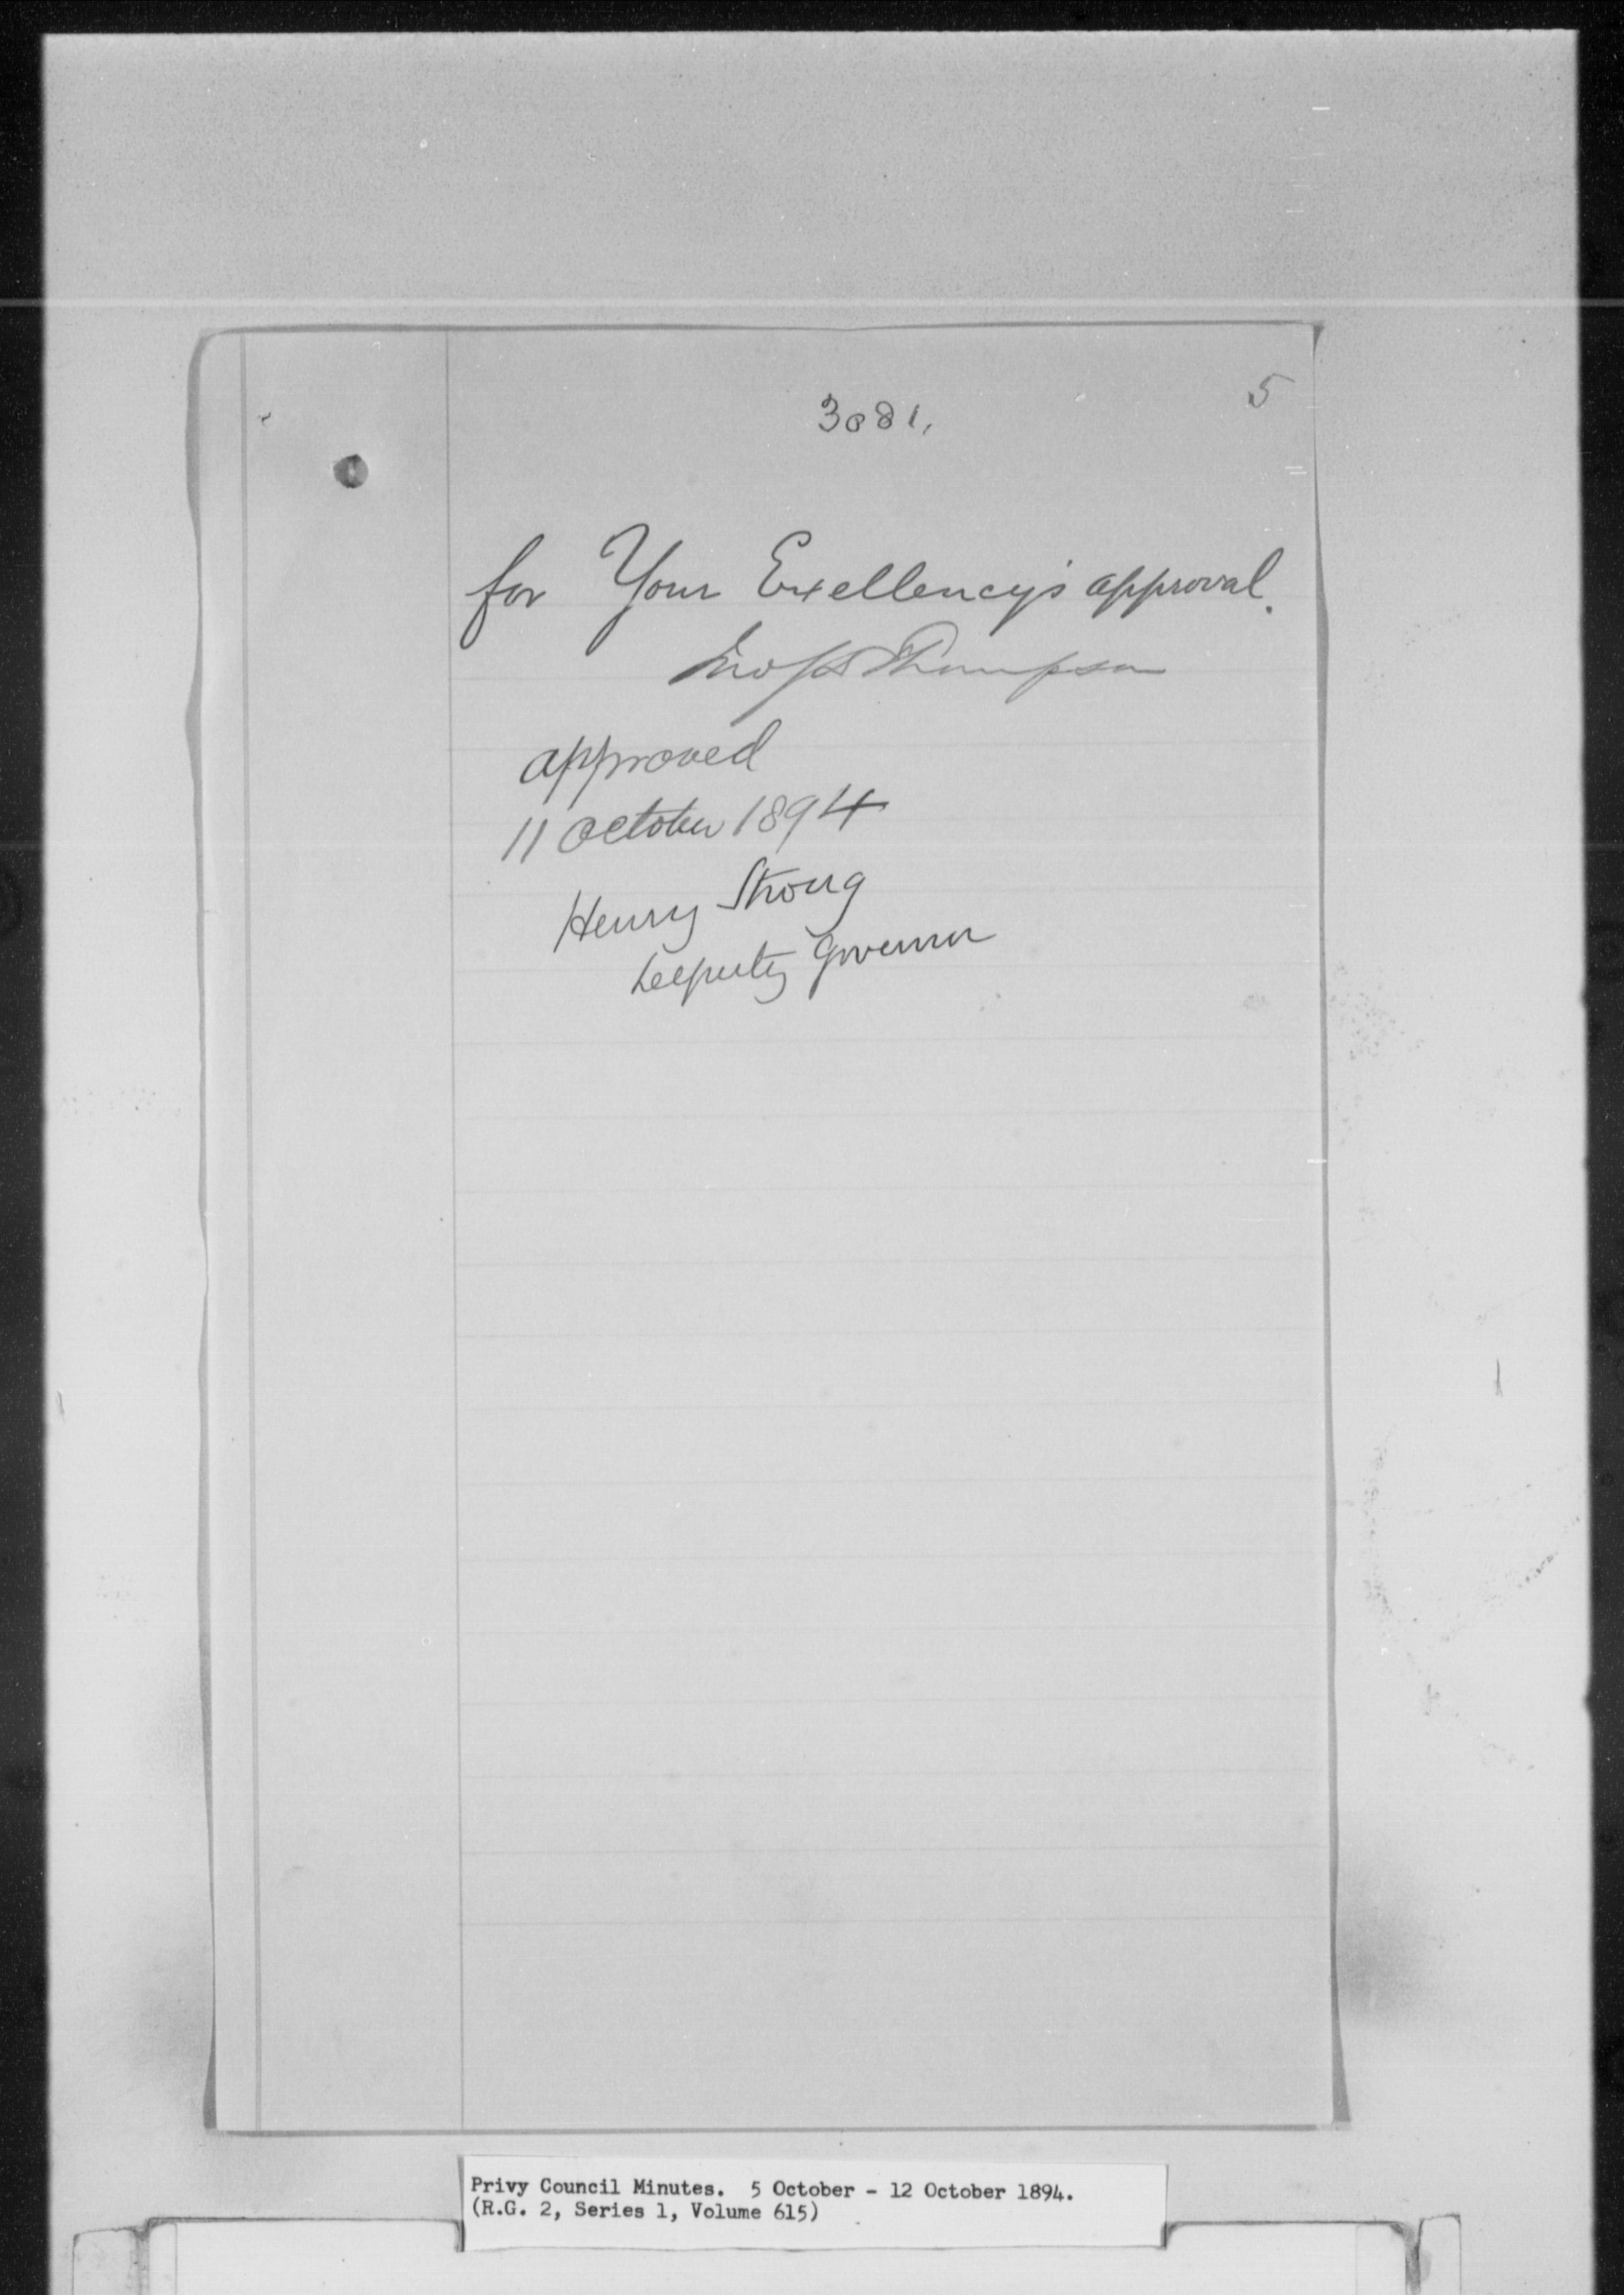 5
3081.
for Your Exellency's approval.
Jno S D Thompson
approved
11 October 1894
Henry Strong
Deputy Governor
Privy Council Minutes. 5 October - 12 October 1894.
(R.G. 2, Series 1, Volume 615)